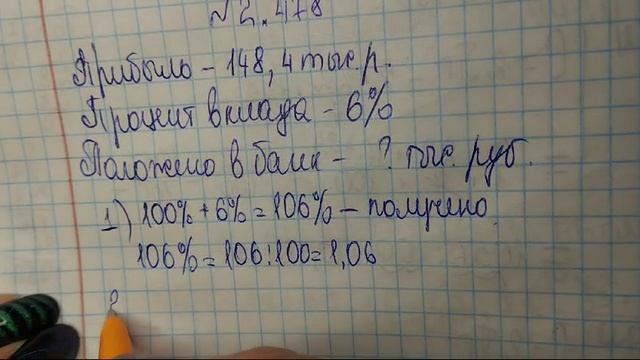 №2.478
Прибыль - 148,4 тыс.р.
Процент вклада - 6%
Положено в банк - ? тыс. руб.
1) 100% + 6% = 106% - получено
106% = 106:100 = 1,06